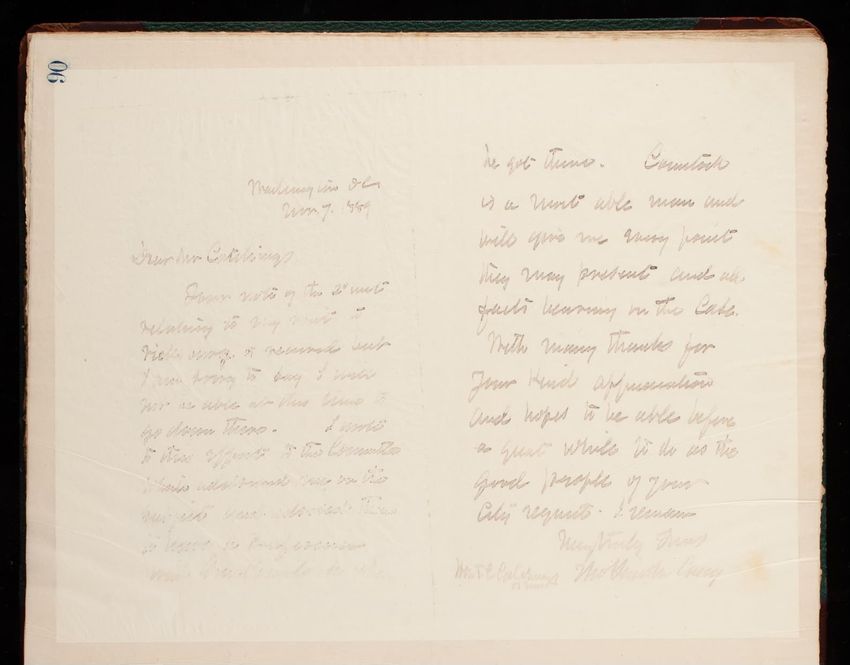 90
Washington DC
Nov. 7. 1889
Dear Mr Catchings
Your note of the 2d inst
relating to my visit to
Vicksburg is received but
I am sorry to say I will
not be able at this time to
go down there. I wrote
to this effect to the Committee
which addressed me on the
subject and advised them
to have a
with Comstock
he got there. Comstock
is a most able man and
will give me every point
they may present and all
facts bearing on the Case.
With many thanks for
your kind
and hopes to be able before
a great while to do as the
good people of your
City request. I remain
Very truly yours
Thos Lincoln Casey
Catchings